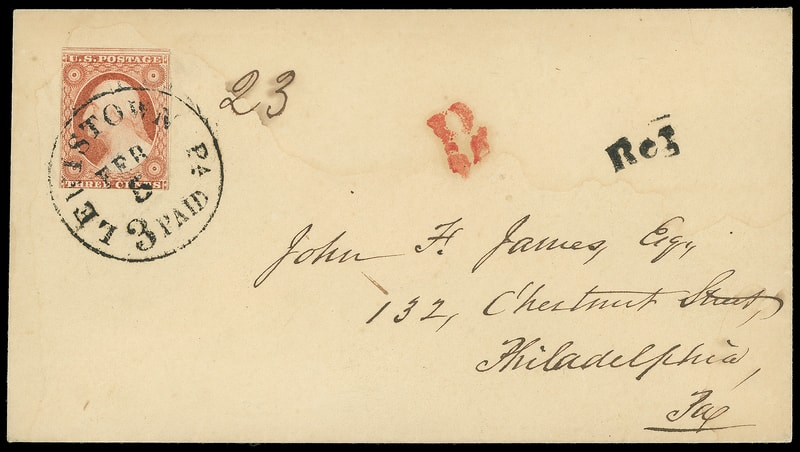 U.S. POSTAGE
THREE CENTS
LEWISTOWN PA
FEB
3 PAID
23
R
Reg
John F. James, Esq,
132, Chestnut Street,
Philadelphia,
Pa